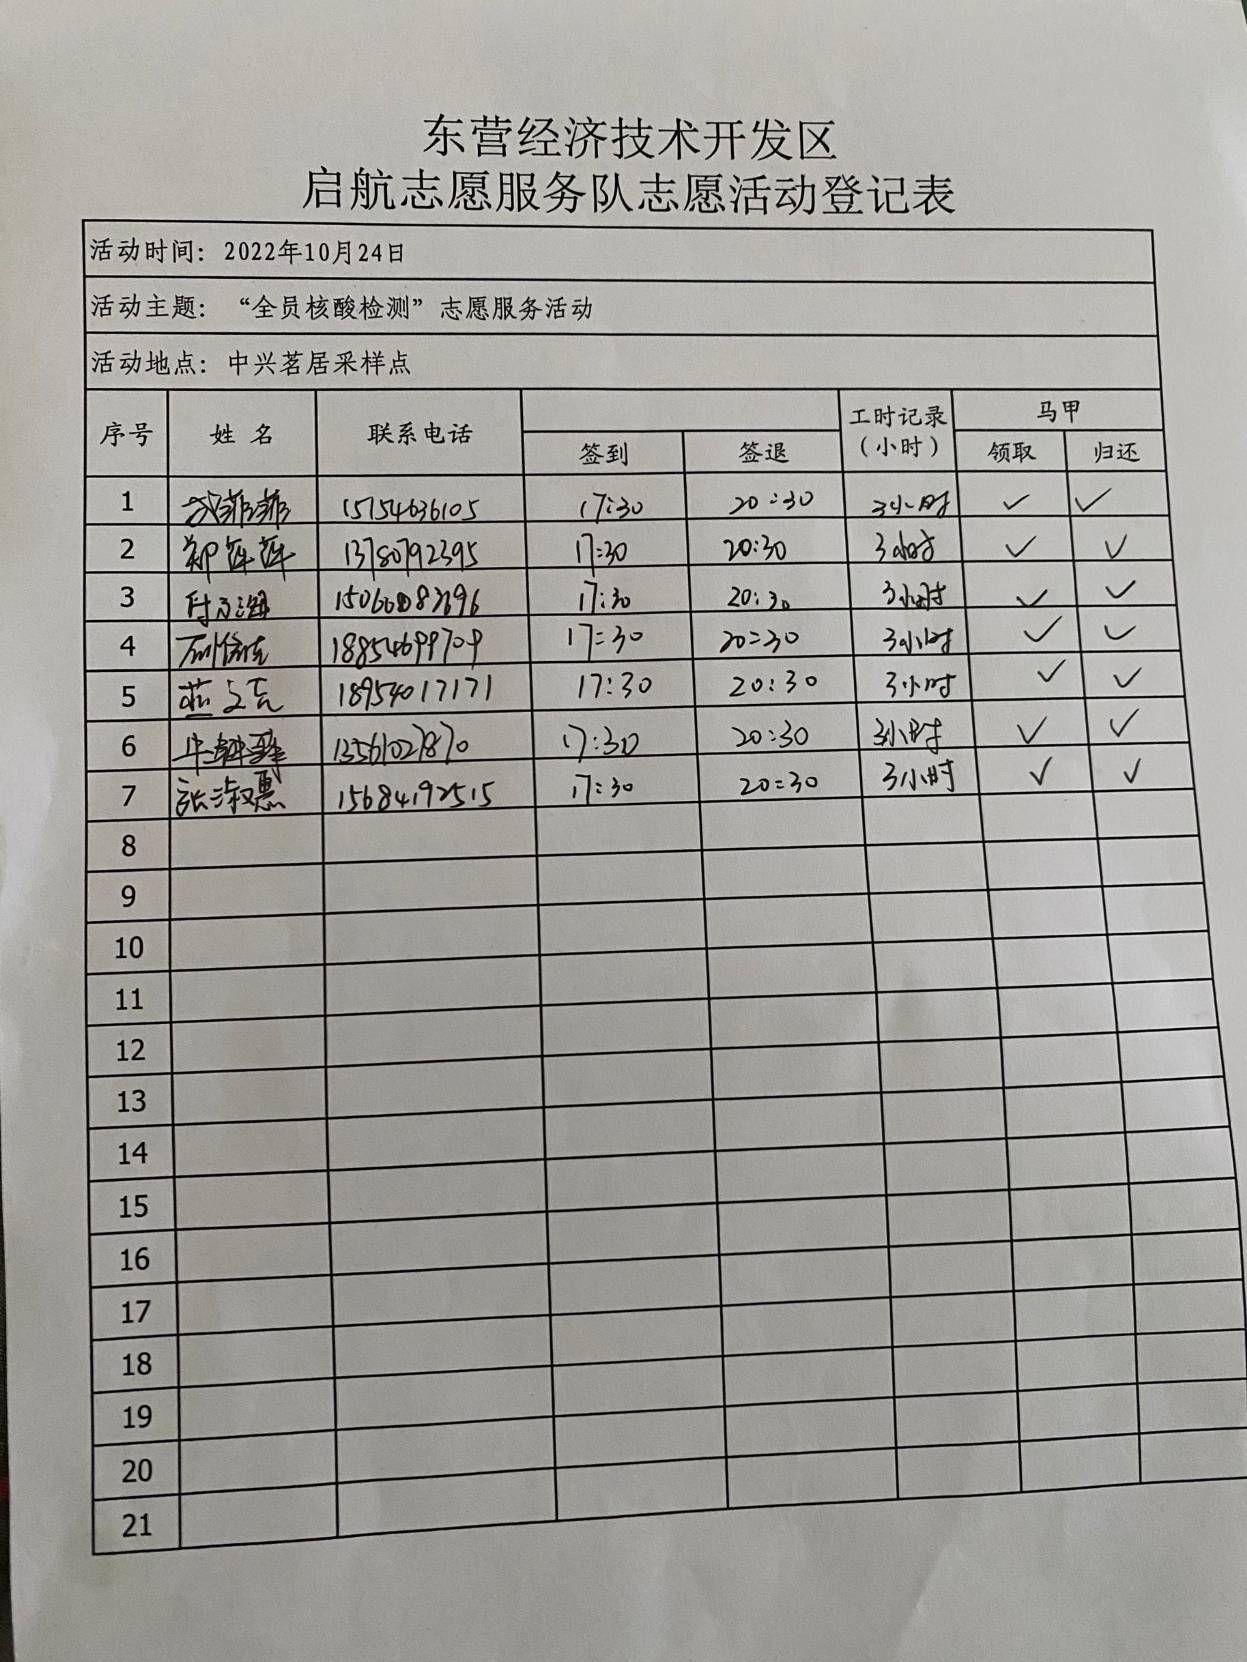 东营经济技术开发区
启航志愿服务队志愿活动登记表
活动时间：2022年10月24日
活动主题：“全员核酸检测”志愿服务活动
活动地点：中兴茗居采样点
序号 姓名 联系电话 签到 签退 工时记录（小时） 马甲 领取 归还
1 菲菲 15754636105 17:30 20:30 3小时 ✓ ✓
2 郑萍萍 13780792395 17:30 20:30 3小时 ✓ ✓
3 17:30 20:30 3小时 ✓ ✓
4 18854699709 17:30 20:30 3小时 ✓ ✓
5 18954017171 17:30 20:30 3小时 ✓ ✓
6 13561027870 17:30 20:30 3小时 ✓ ✓
7 张淑惠 15684192515 17:30 20:30 3小时 ✓ ✓
8
9
10
11
12
13
14
15
16
17
18
19
20
21